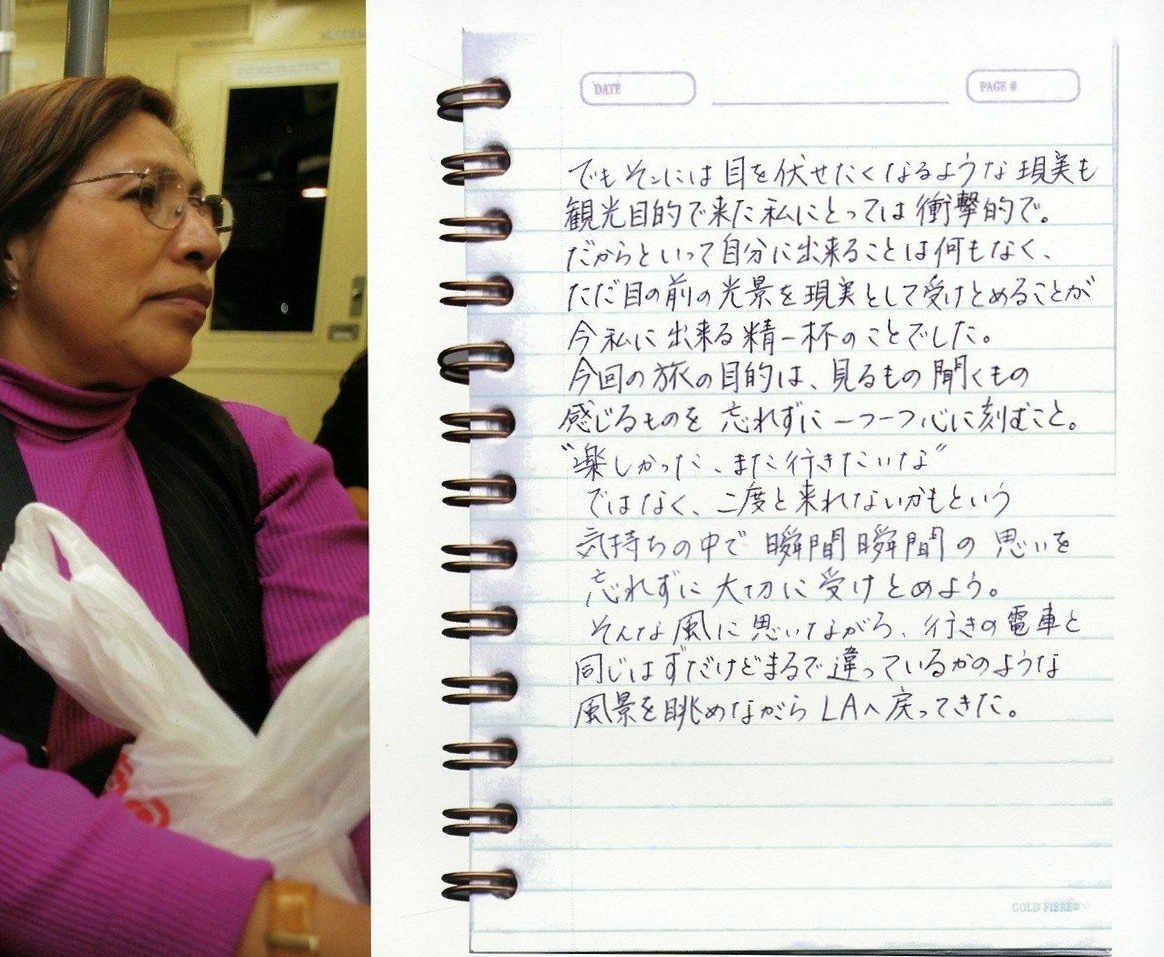 DATE
PAGE #
でもそこには目を伏せたくなるような現実も
観光目的で来た私にとっては衝撃的で。
だからといって自分に出来ることは何もなく、
ただ目の前の光景を現実として受けとめることが
今私に出来る精一杯のことでした。
今回の旅の目的は、見るもの聞くもの
感じるものを忘れずに一つ一つ心に刻むこと。
“楽しかった、また行きたいな”
ではなく、二度と来れないかもという
気持ちの中で瞬間瞬間の思いを
忘れずに大切に受けとめよう。
そんな風に思いながら、行きの電車と
同じはずだけどまるで違っているかのような
風景を眺めながらLAへ戻ってきた。
COLD FIBRES